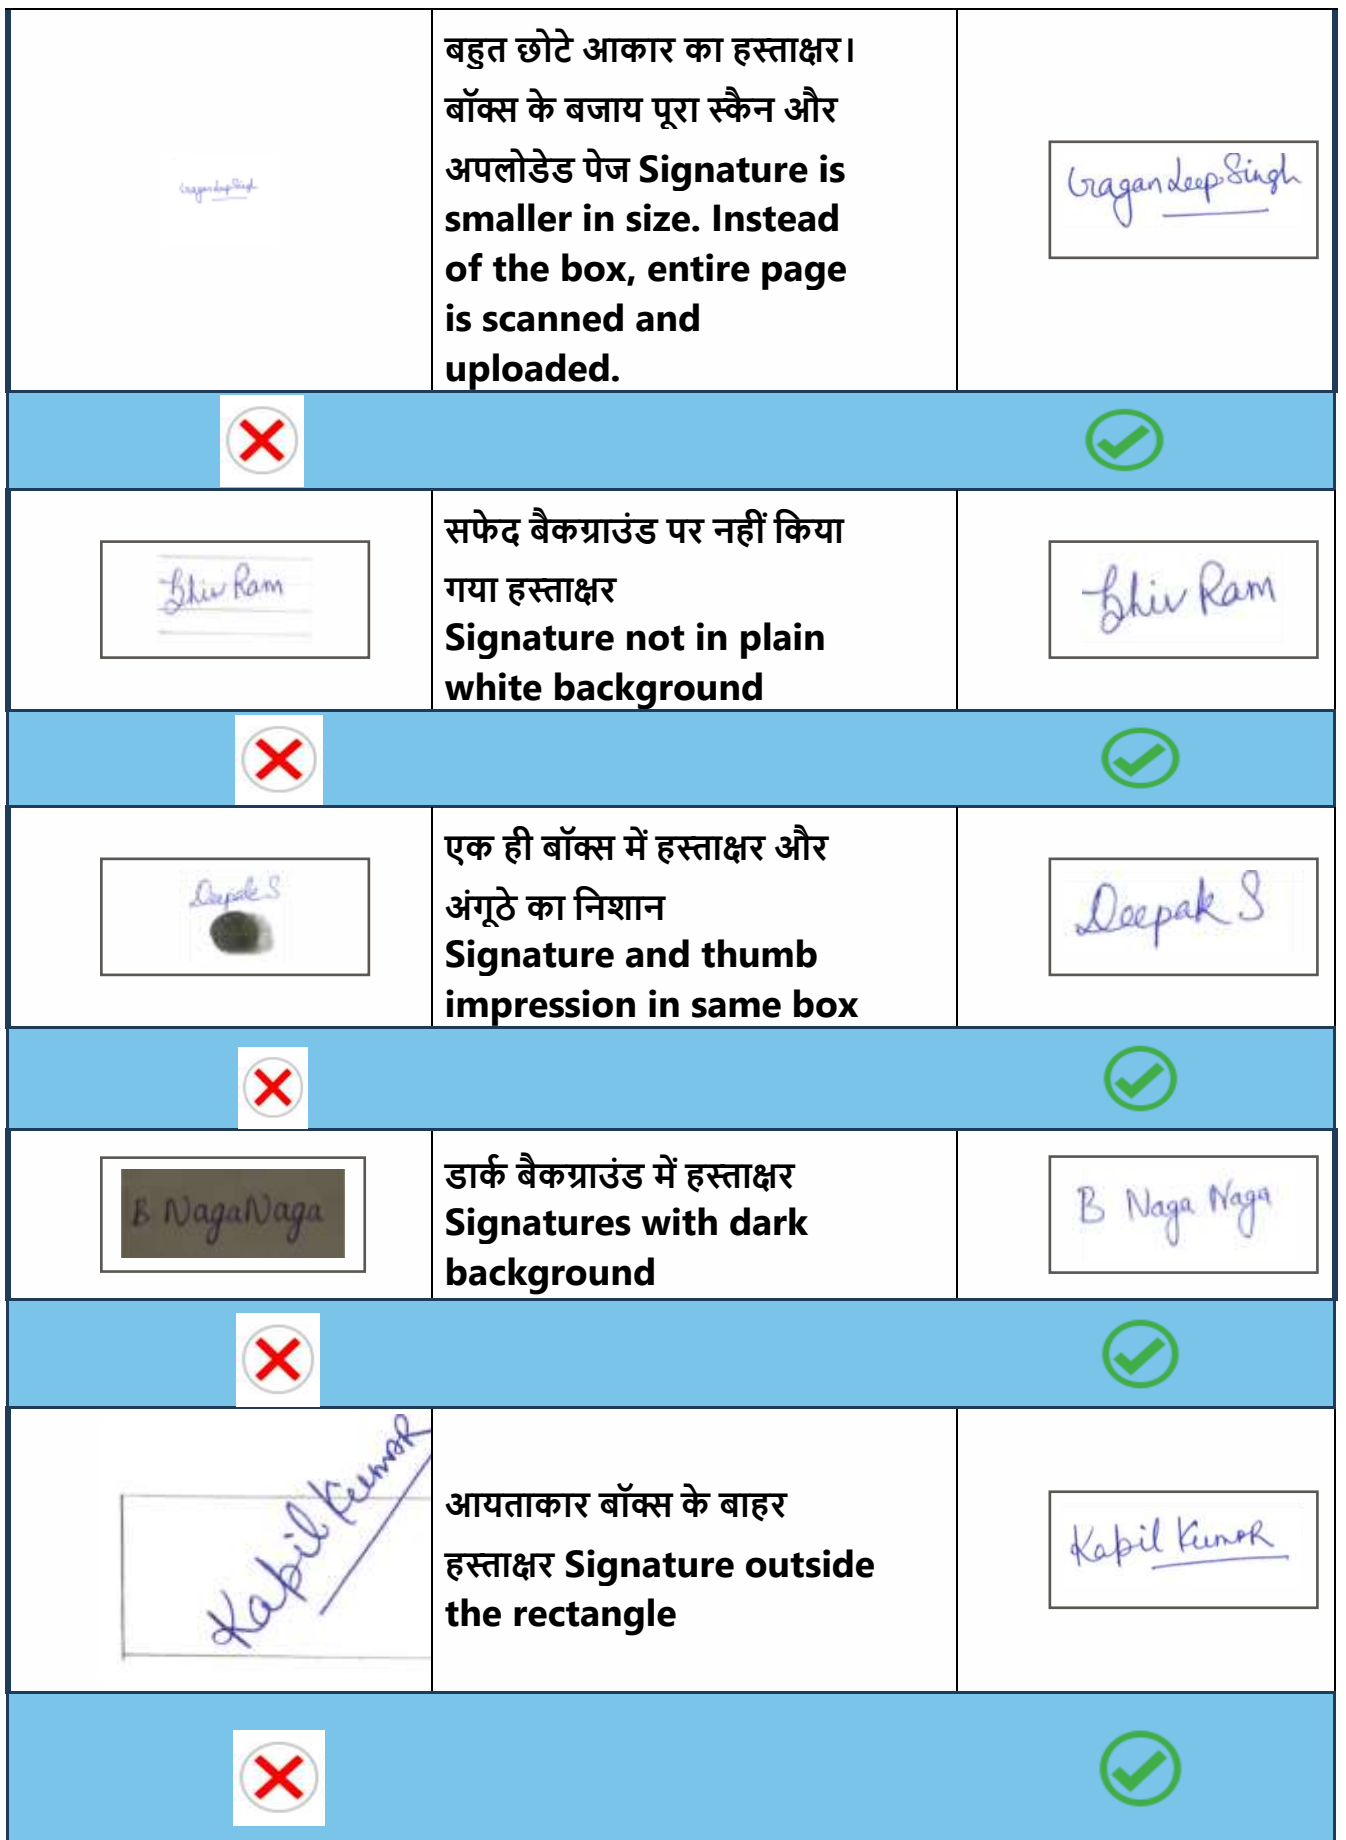 Gagandeep Singh
बहुत छोटे आकार का हस्ताक्षर।
बॉक्स के बजाय पूरा स्कैन और
अपलोडेड पेज Signature is
smaller in size. Instead
of the box, entire page
is scanned and
uploaded.
Gagandeep Singh
Shiv Ram
सफेद बैकग्राउंड पर नहीं किया
गया हस्ताक्षर
Signature not in plain
white background
Shiv Ram
Deepak S
एक ही बॉक्स में हस्ताक्षर और
अंगूठे का निशान
Signature and thumb
impression in same box
Deepak S
B NagaNaga
डार्क बैकग्राउंड में हस्ताक्षर
Signatures with dark
background
B Naga Naga
Kapil Kumar
आयताकार बॉक्स के बाहर
हस्ताक्षर Signature outside
the rectangle
Kapil Kumar